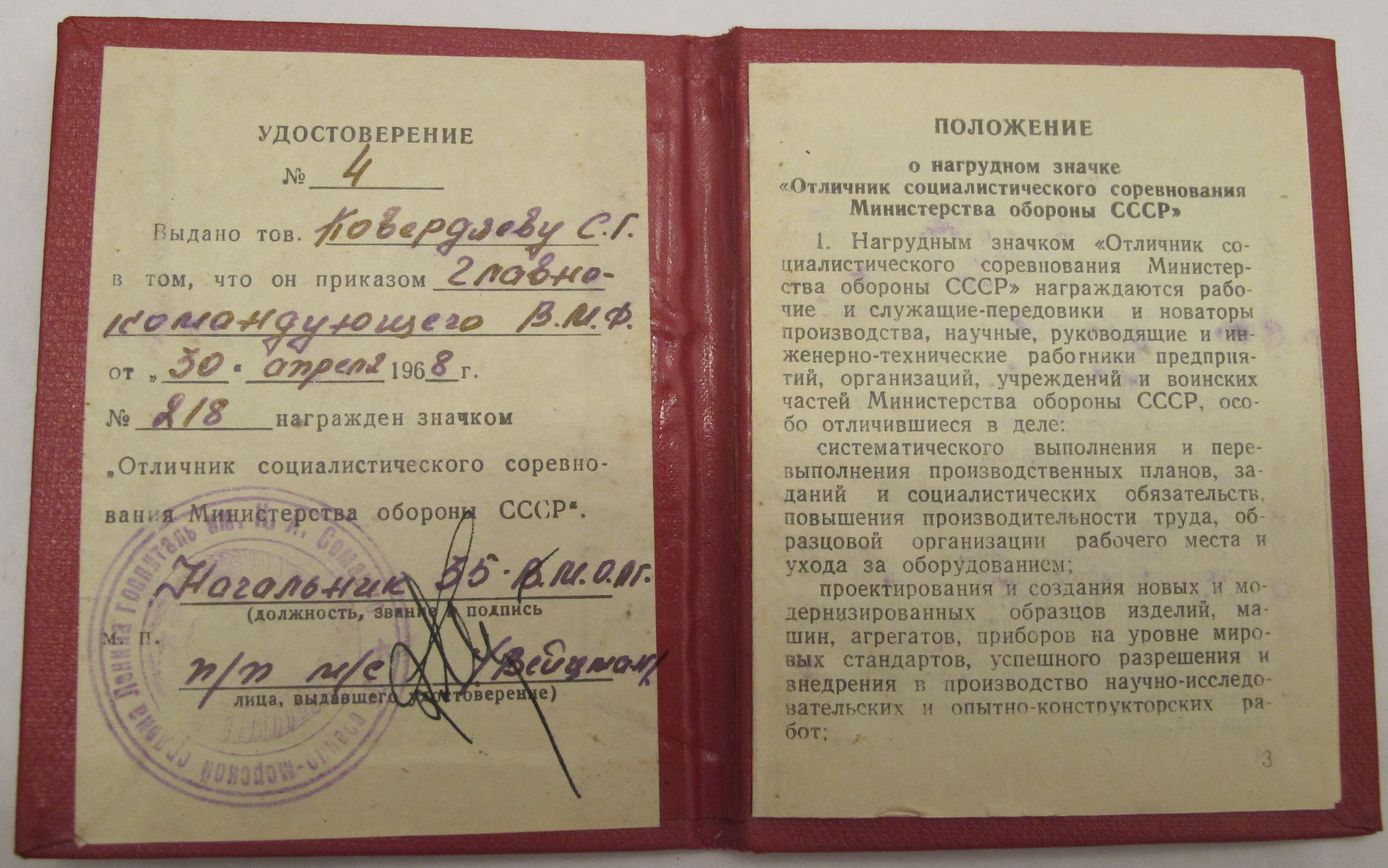 УДОСТОВЕРЕНИЕ
№ 4
Выдано тов. Ковердяеву С.Г.
в том, что он приказом Главно-
командующего В.М.Ф.
от „30" апреля 1968 г.
№ 218 награжден значком
„Отличник социалистического соревно-
вания Министерства обороны СССР".
Начальник 35-В.М.О.Лг.
(должность, звание и подпись
М. П.
п/п м/с /Вейцман/
лица, выдавшего удостоверение)
Ленина госпиталь им. Н. А. Сема
морской ордена
ПОЛОЖЕНИЕ
о нагрудном значке
«Отличник социалистического соревнования
Министерства обороны СССР»
1. Нагрудным значком «Отличник со-
циалистического соревнования Министер-
ства обороны СССР» награждаются рабо-
чие и служащие-передовики и новаторы
производства, научные, руководящие и ин-
женерно-технические работники предприя-
тий, организаций, учреждений и воинских
частей Министерства обороны СССР, осо-
бо отличившиеся в деле:
систематического выполнения и пере-
выполнения производственных планов, за-
даний и социалистических обязательств,
повышения производительности труда, об-
разцовой организации рабочего места и
ухода за оборудованием;
проектирования и создания новых и мо-
дернизированных образцов изделий, ма-
шин, агрегатов, приборов на уровне миро-
вых стандартов, успешного разрешения и
внедрения в производство научно-исследо-
вательских и опытно-конструкторских ра-
бот;
3